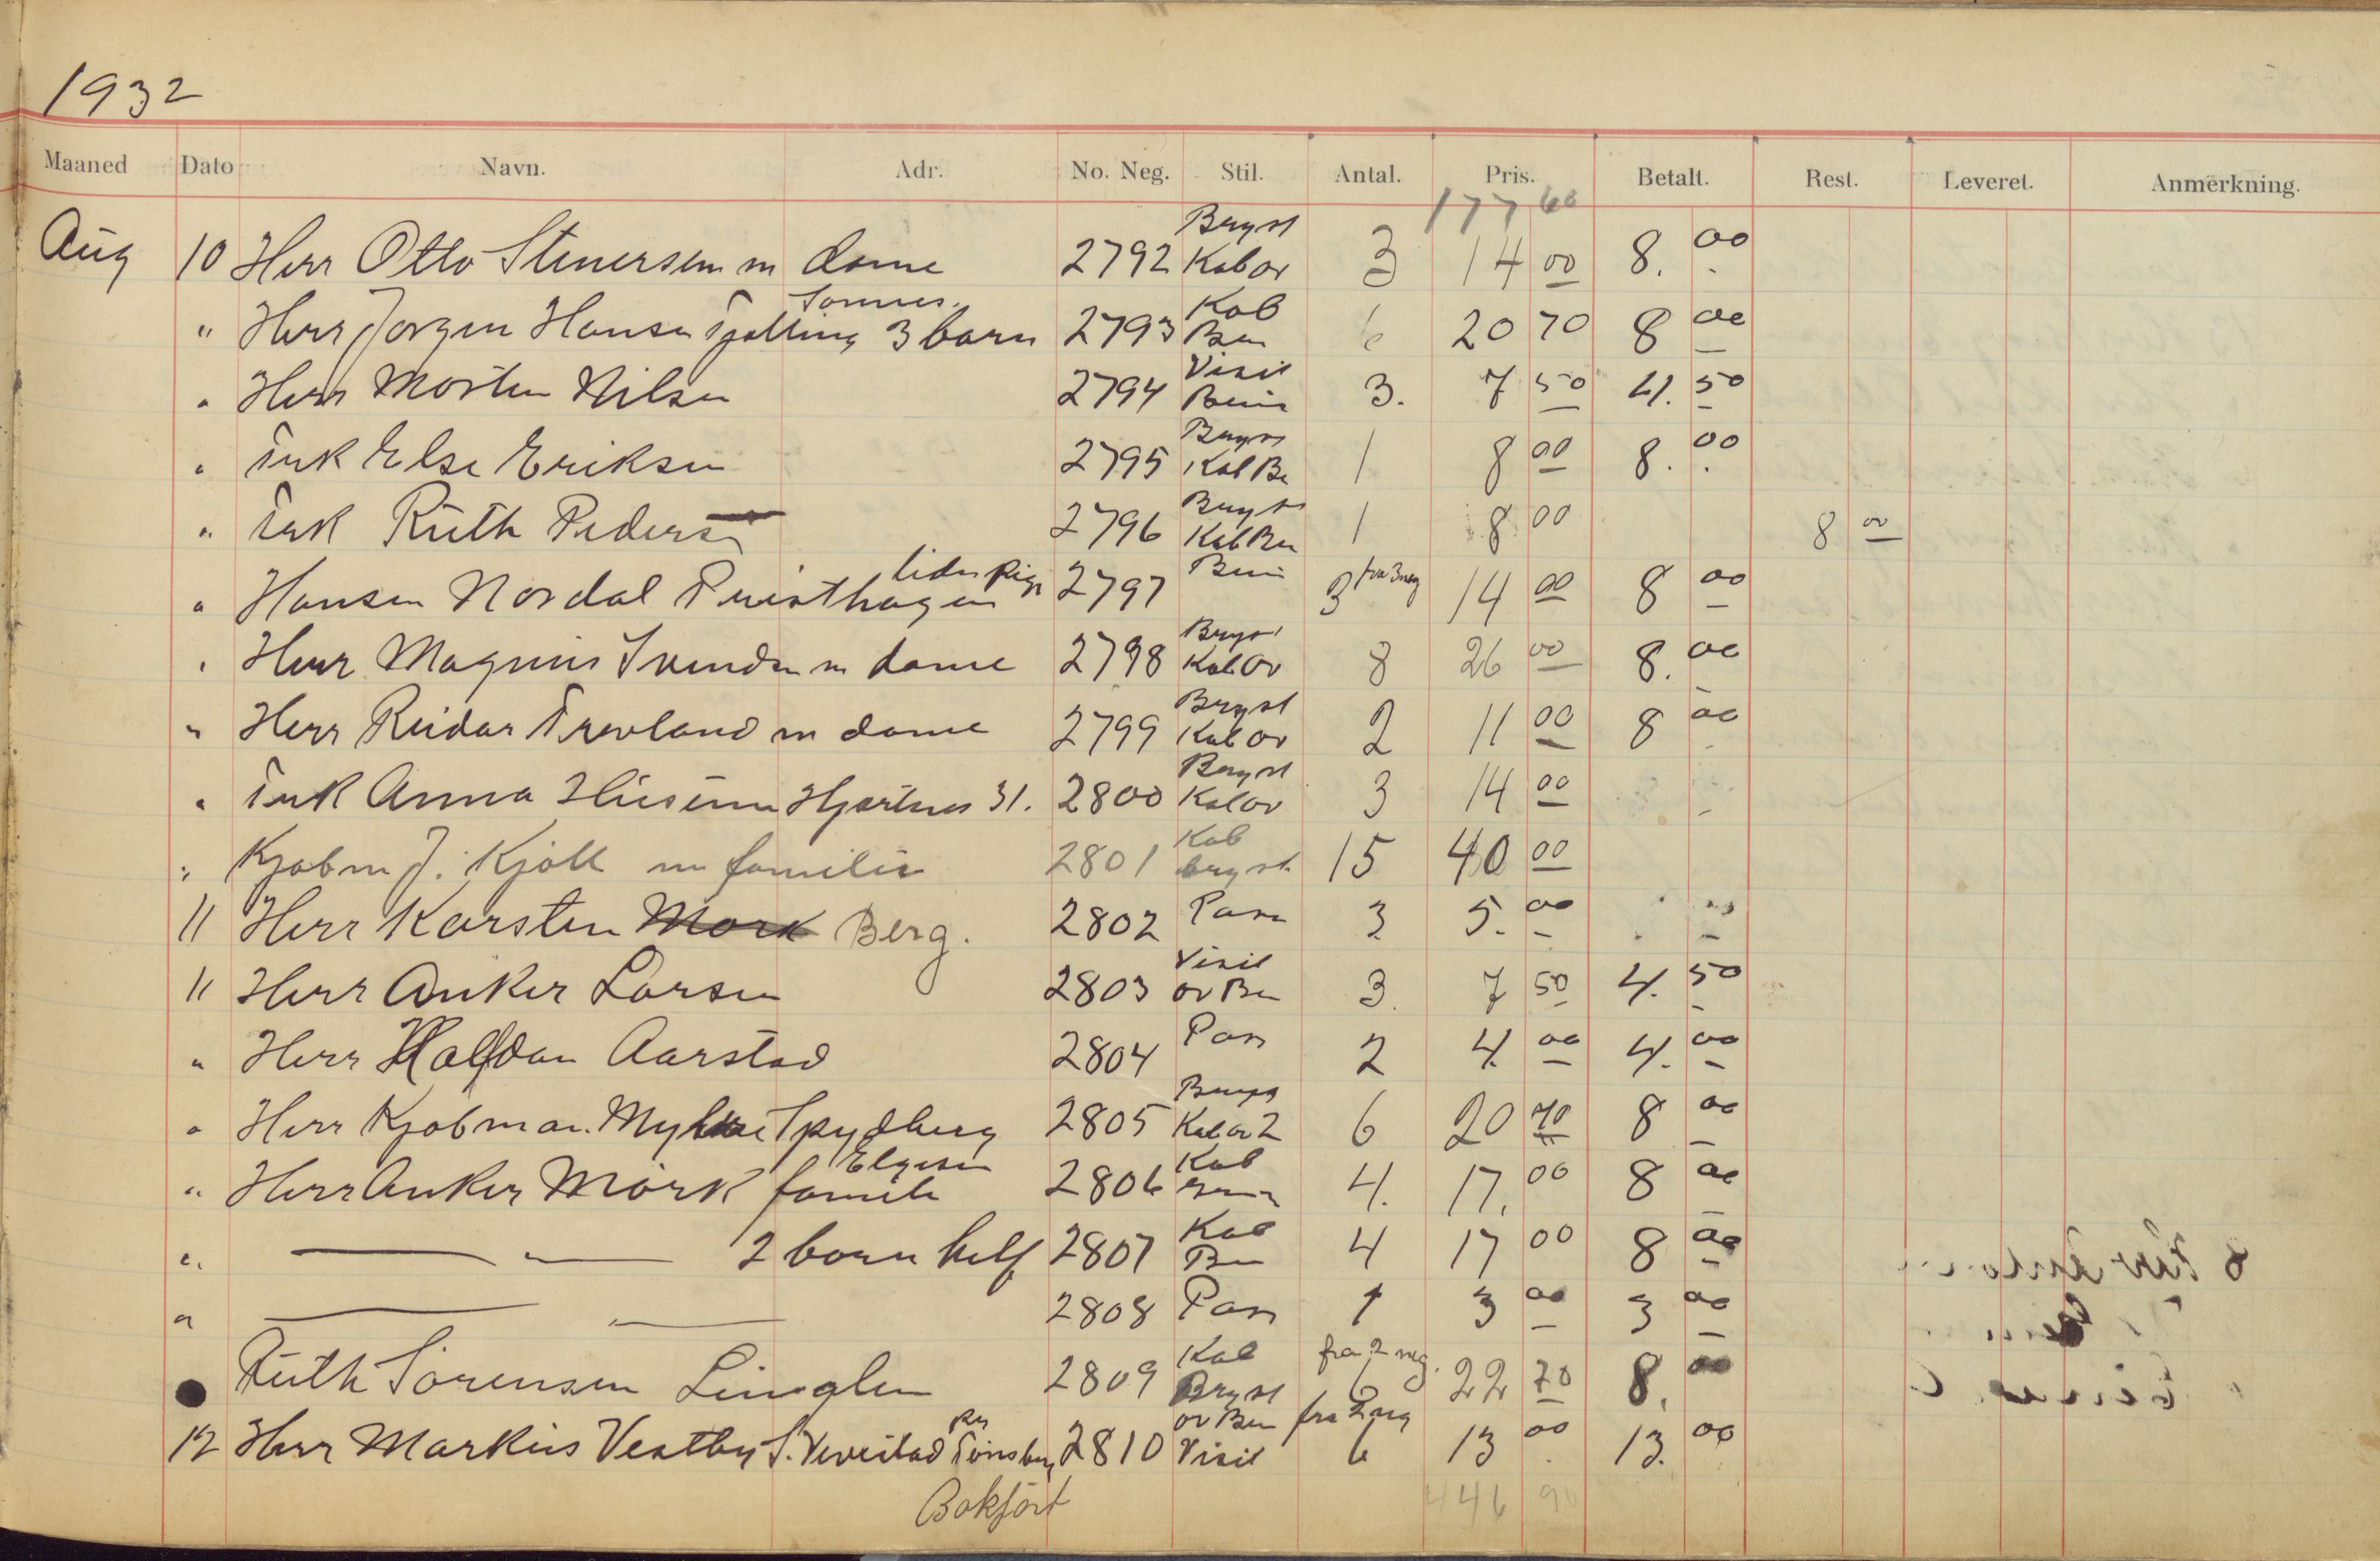 1932
Maaned Dato Navn. Adr. No. Neg. Stil. Antal. Pris. Betalt. Rest. Leveret. Anmerkning.
177 60
Aug 10 Herr Otto Stenersen m dame 2792 Bryst Kab ov 3 14 00 8. 00
" Herr Jorgen Hansen Tjølling 3 barn 2793 Kab Ben 6 20 70 8 00
" Herr Morten Nilsen 2794 Visit 3. 7 50 4. 50
" Frk Else Eriksen 2795 Bryst Kab Be 1 8 00 8. 00
" Frk Ruth Pedersen 2796 Bryst Kab Ben 1 8 00 8 00
" Hansen Nordal Presthagen liden Pige 2797 3 fra 3 neg 14 00 8 00
" Herr Magnus Svendsen m dame 2798 Bryst Kab ov 8 26 00 8. 00
" Herr Reidar Trevland m dame 2799 Bryst Kab ov 2 11 00 8 00
" Frk Anna Hjertnes 31. 2800 Bryst Kab ov 3 14 00
" Kjøbm J. Kjøll m familie 2801 Kab bryst 15 40 00
11 Herr Karsten Mørk Berg. 2802 Pas 3 5. 00
11 Herr Anker Larsen 2803 Visit ov Ben 3. 7 50 4. 50
" Herr Halfdan Aarstad 2804 Pas 2 4. 00 4. 00
" Herr Kjøbman. Spydberg 2805 Bryst Kab ov 2 6 20 70 8 00
" Herr Anker Mørk familie Elgesen 2806 Kab 4. 17. 00 8 00
" — — 2 barn helf 2807 Kab Be 4 17 00 8 00
" — — 2808 Pas 1 3 00 3 00
Ruth Sørensen Linglem 2809 Kab Bryst fra 2 neg. 6 22 70 8. 00
12 Herr Markus Vestby Tønsberg 2810 ov Ben Visit fra 2 neg 6 13 00 13. 00
Bokført 446 90